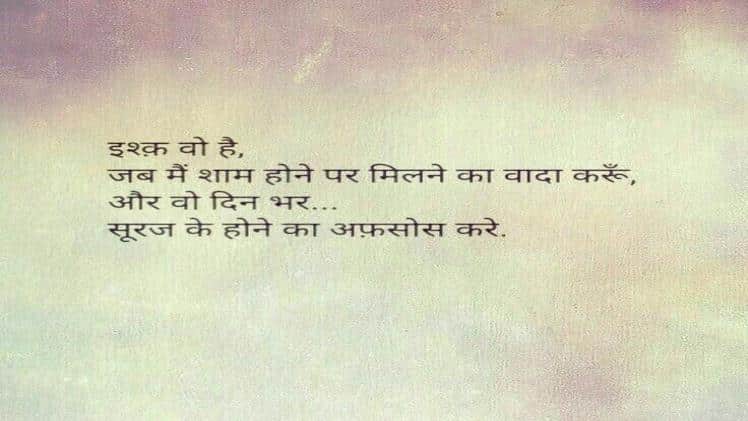 इश्क़ वो है,
जब मैं शाम होने पर मिलने का वादा करूँ,
और वो दिन भर...
सूरज के होने का अफ़सोस करे.